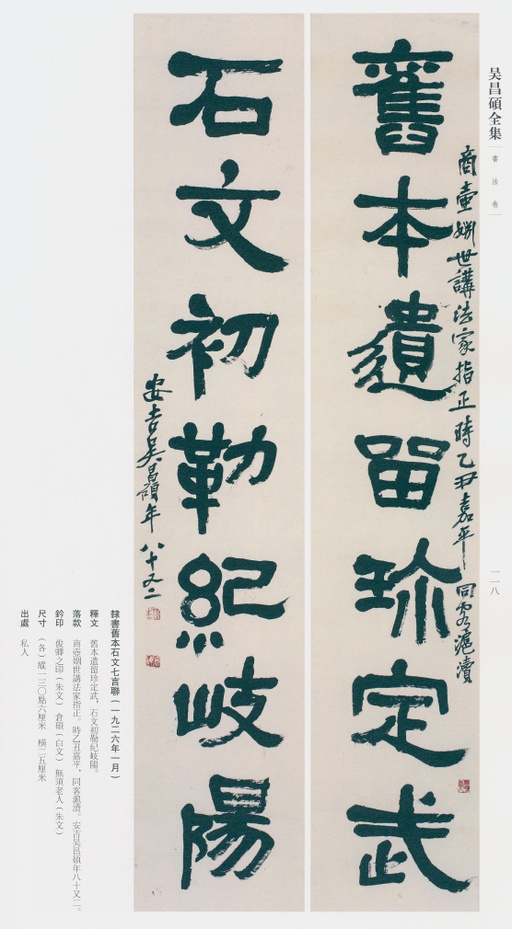 吴昌碩全集
書法卷
一一八
舊本遺留珎定武
商壷姻世講法家指正時乙丑嘉平同客滬瀆
石文初勒紀岐陽
安吉吴昌碩年八十又二
隸書舊本石文七言聯（一九二六年一月）
釋文　舊本遺留珍定武，石文初勒紀岐陽。
落款　商壺姻世講法家指正。時乙丑嘉平，同客滬瀆。安吉吴昌碩年八十又二。
鈐印　俊卿之印（朱文）　倉碩（白文）　無須老人（朱文）
尺寸　（各）縱一三〇點六厘米　橫二五厘米
出處　私人